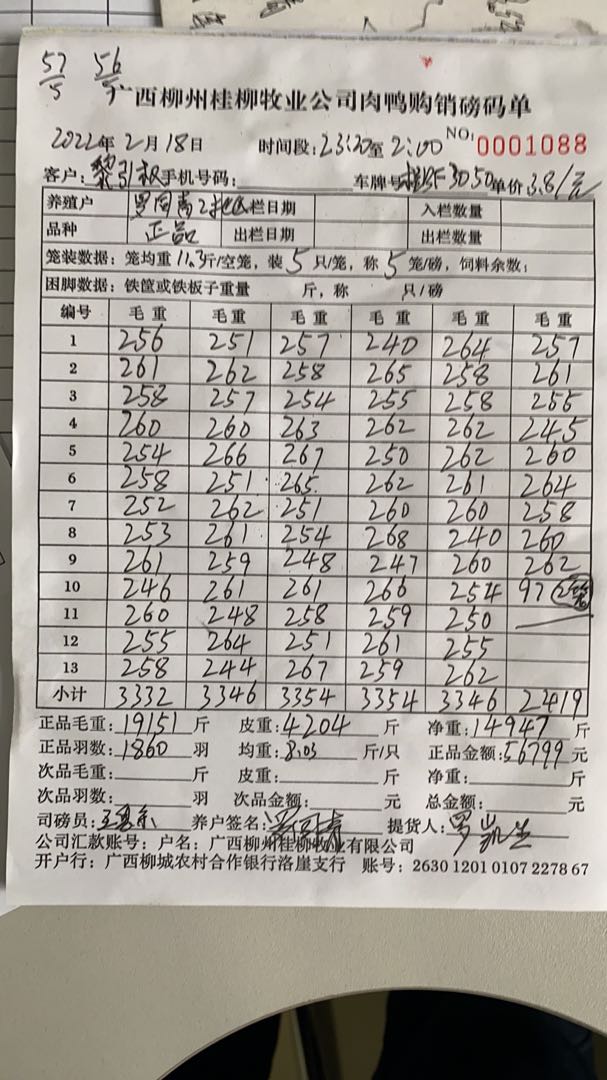 57/5 56/5
广西柳州桂柳牧业公司肉鸭购销磅码单
2022年2月18日 时间段:23:20至2:00 NO: 0001088
客户:黎引权 手机号码: 车牌号 3050 单价3.8/元
养殖户 栏日期 入栏数量
品种 正品 出栏日期 出栏数量
笼装数据:笼均重11.3斤/空笼,装5只/笼,称5笼/磅,饲料余数:
困脚数据:铁筐或铁板子重量 斤,称 只/磅
编号 毛重 毛重 毛重 毛重 毛重 毛重
1 256 251 257 240 264 257
2 261 262 258 265 258 261
3 258 257 254 255 258 255
4 260 260 263 262 262 245
5 254 266 267 250 262 260
6 258 251 265 262 261 264
7 252 262 251 260 260 258
8 253 261 254 268 240 260
9 261 259 248 247 260 262
10 246 261 261 266 254 97
11 260 248 258 259 250
12 255 264 251 261 255
13 258 244 267 259 262
小计 3332 3346 3354 3354 3346 2419
正品毛重:19151斤 皮重:4204斤 净重:14947斤
正品羽数:1860羽 均重:8.03斤/只 正品金额:56799元
次品毛重: 斤 皮重: 斤 净重: 斤
次品羽数: 羽 次品金额: 元 总金额: 元
司磅员: 养户签名: 提货人:
公司汇款账号:户名:广西柳州桂柳牧业有限公司
开户行:广西柳城农村合作银行洛崖支行 账号:2630 1201 0107 2278 67